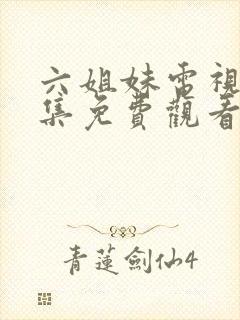 六姐妹電視
集免費觀看
青蓮劍仙4